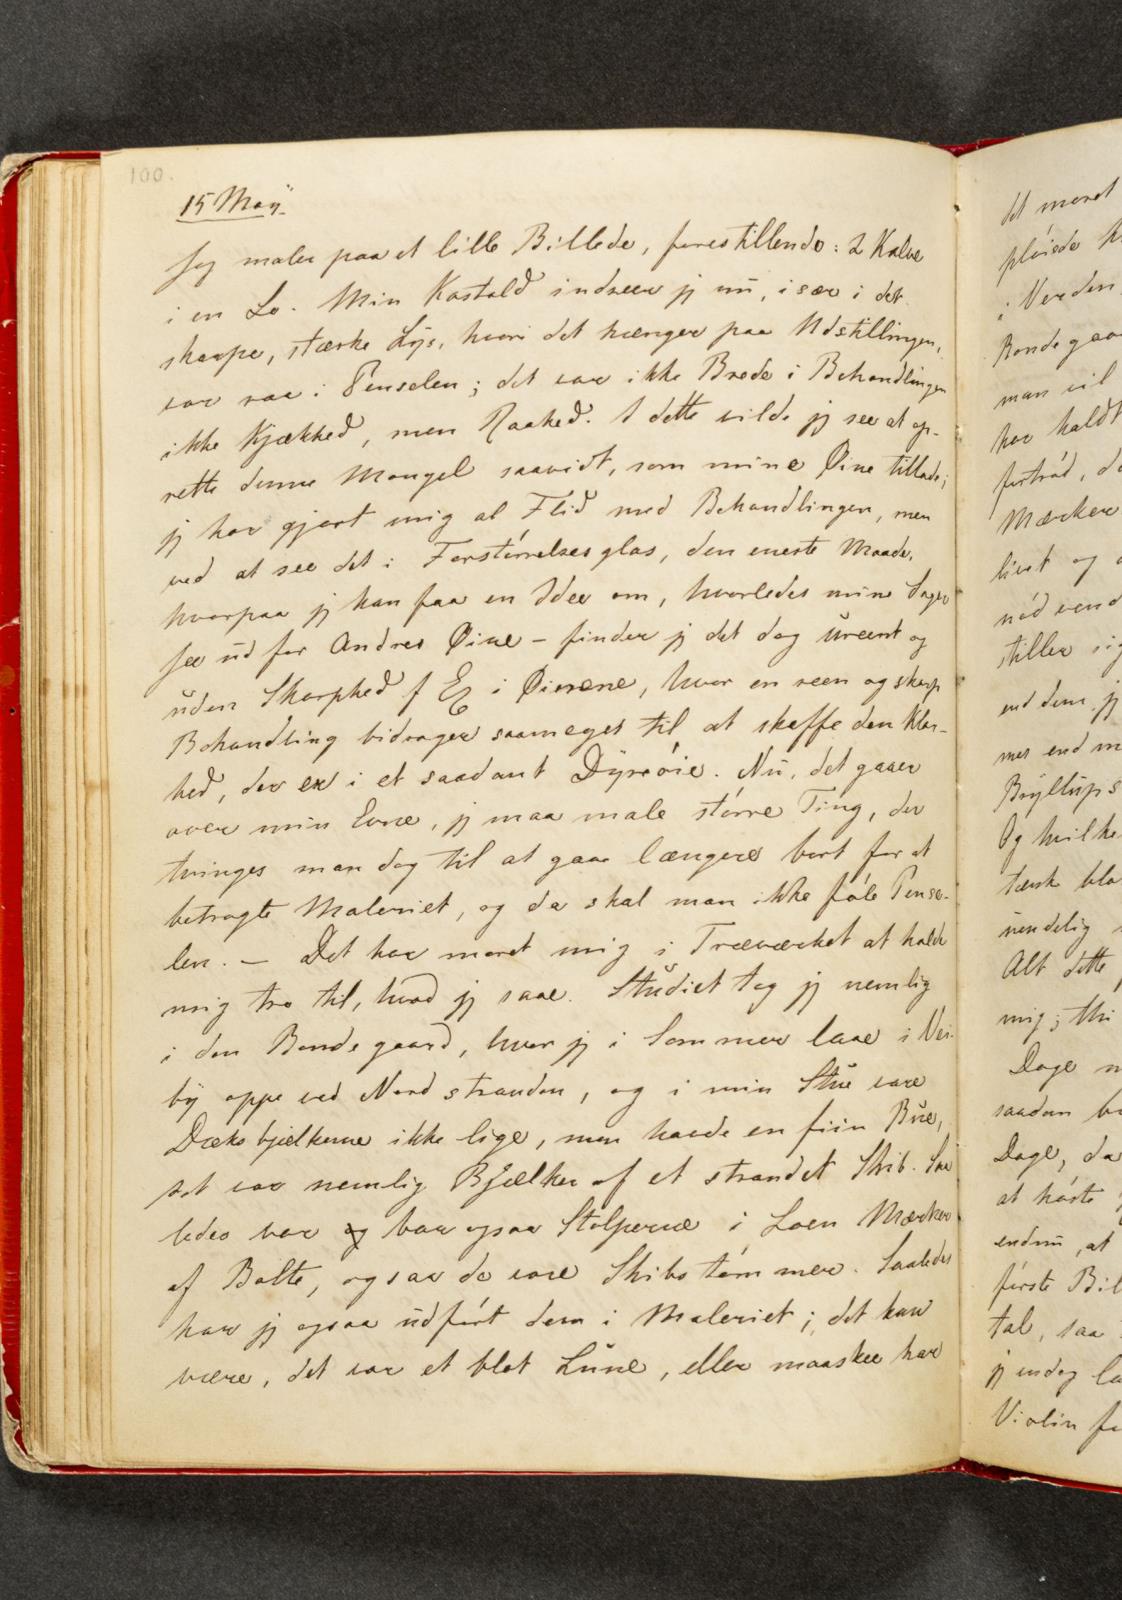 100.
15 May
Jeg maler paa et lille Billede, forestillende: 2 Kalve
i en Lo. Min Kostald indseer jeg nu, især i det
skarpe, stærke Lys, hvori det hænger paa Udstillingen,
var raa i Penselen; det var ikke Brede i Behandlingen
ikke Kjækhed, men Raahed. I dette vilde jeg see at op-
rette denne Mangel saavidt, som mine Øine tillade;
jeg har gjort mig al Flid med Behandlingen, men
ved at see det i Forstørrelsesglas, den eneste Maade,
hvorpaa jeg kan faa en Idee om, hvorledes mine Sager
see ud for Andres Øine – finder jeg det dog ureent og
uden Skarphed f Ex i Øinene, hvor en reen og skarp
Behandling bidrager saameget til at skaffe den Klar-
hed, der er i et saadant Dyreøie. Nu, det gaaer
over min Evne, jeg maa male større Ting, der
tvinges man dog til at gaae længere bort for at
betragte Maleriet, og da skal man ikke føle Pense-
len. – Det har moret mig i Træværket at holde
mig tro til, hvad jeg saae. Studiet tog jeg nemlig
i den Bondegaard, hvor jeg i Sommer laae i Vei-
by oppe ved Nordstranden, og i min Stue vare
Dæksbjelkerne ikke lige, men havde en fiin Bue,
det var nemlig Bjælker af et strandet Skib. Saa
ledes var og bar ogsaa Stolperne i Loen Mærker
af Bolte, ogsaa de vare Skibstømmer. Saaledes
har jeg ogsaa udført dem i Maleriet; det kan
være, det var et blot Lune, eller maaskee har
det moret
pløiede
i Verden
Bondegaar
man vil
har holdt
fortrød, d
Mærker
livet og
nødvend
stiller sig
end dem jeg
mer end m
Bryllups
Og hvilke
tænk bla
uendelig
Alt dette
mig; thi
Dage
saadan
Dage, da
at høste
endnu, at
første Bil
tal, saa
jeg endog
Violin